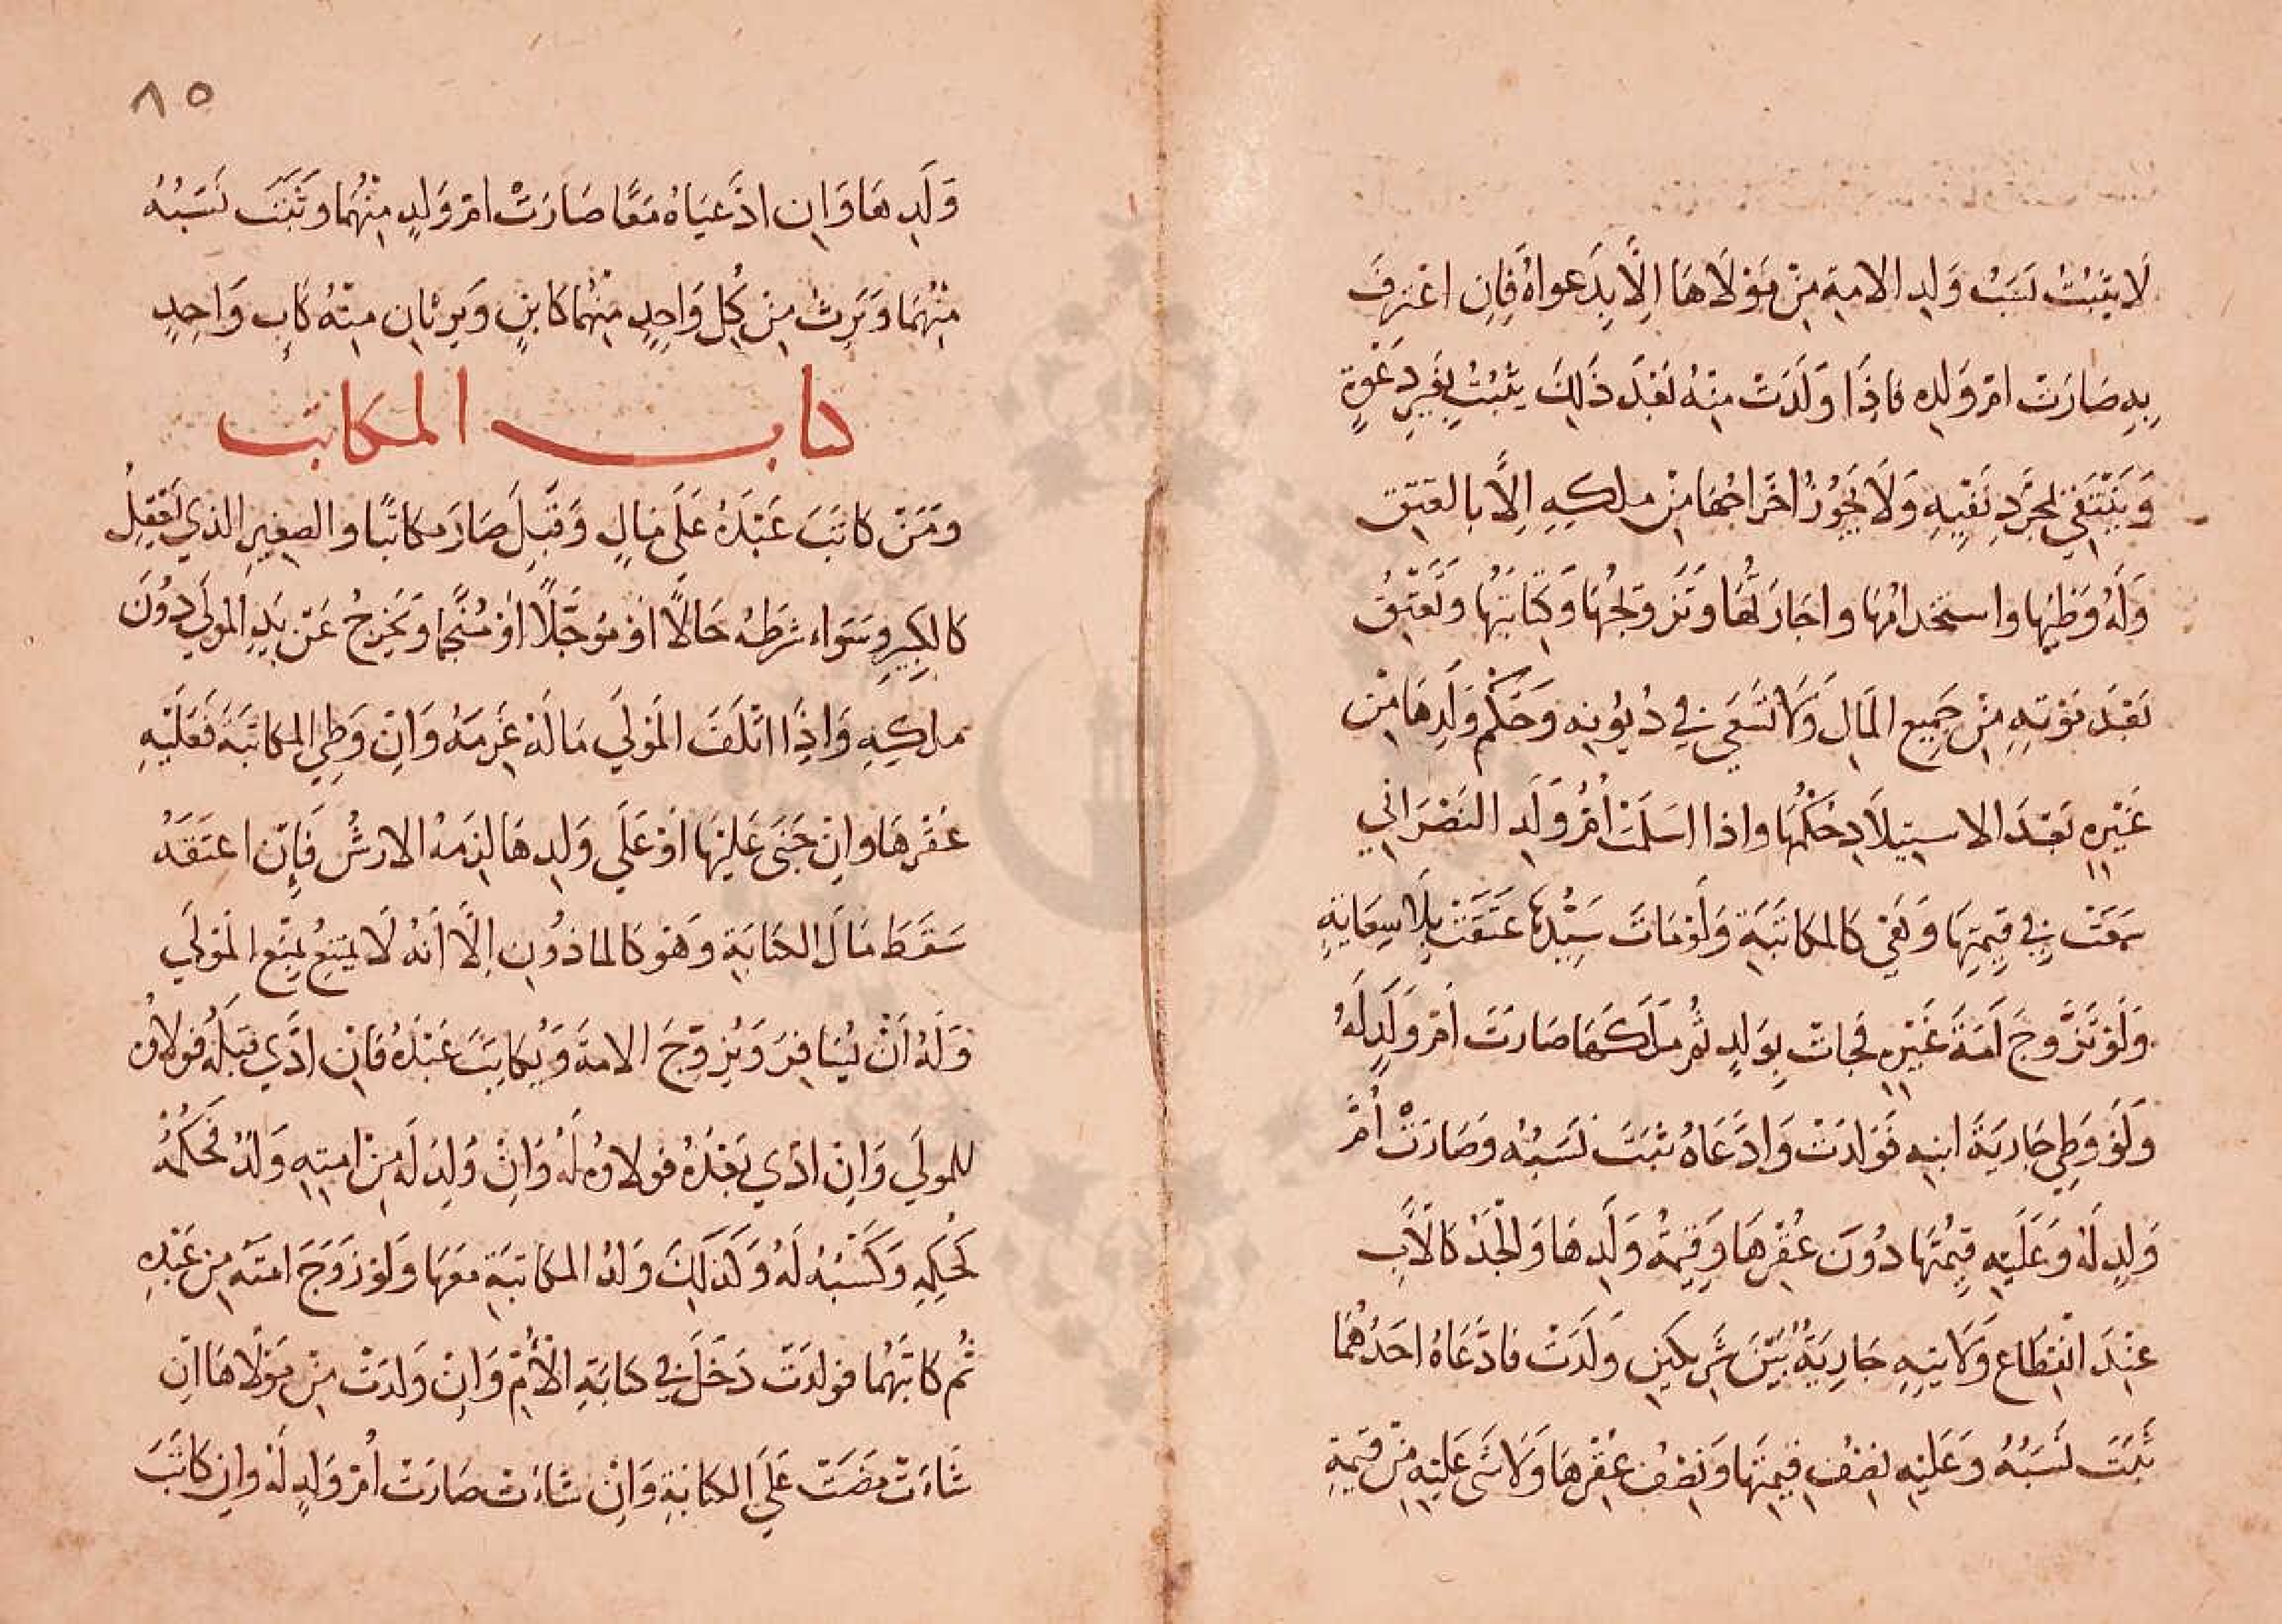 لَا يَثبُتُ نَسَبُ وَلدِ الامةِ مِنْ مَوْلَاهَا اِلَّا بِدَعواهُ فَاِنِ اعْتَرفَ
بِهِ صَارَتْ امْ وَلدِهِ فاذَا وَلَدَتْ مِنْهُ بَعْدَ ذَلِكَ يثبُتُ بِغَيرِ دَعْوةٍ
وَيَنْتَفي بمُجَرَّدِ نَفْيِهِ وَلَا يَجُوزُ اخْرَاجُهَا مِنْ ملكِهِ اِلَّا بالعِتِقِ
وَلَهُ وَطيُهَا واستخدامُهَا واجَارَتُهَا وتَزويجُهَا وَكِتَابَتُهَا وتَعْتِقُ
بَعْدَ مَوْتِهِ مِنْ جَمِيعِ المَالِ وَلَا تَسْعَى في دُيُونِه وَحُكْمُ وَلَدِهَا مِنْ
غَيْرِهِ بَعْدَ الاستِيلَادِ حُكْمُهَا واذا اسَلَمَتْ اُمُّ وَلَدِ النَصْرَانِي
سَعَتْ في قِيمتِهَا وَهَيَ كالمكاتَبَةِ وَلَوْ مَاتَ سَيّدُهَا عَتَقَتْ بِلَا سِعَايَةٍ
وَلَوْ تَزَّوجَ اَمَةَ غَيْرِه فجَاتْ بِوَلدٍ ثُم مَلَكَهَا صَارَتْ اُمْ وَلَدٍ لَهُ
وَلَوْ وَطِي جَاريَةَ ابنِهِ فَوَلدَتْ وَادَّعَاهُ ثبَتَ نَسَبُهُ وَصَارَتْ اُمَّ
وَلدٍ لَهُ وَعَلَيْهِ قِيمَتُهَا دُونَ عُقْرِهَا وَقِيمةُ وَلَدِهَا وَالْجَدُ كَالَابِ
عِنْدَ انْقِطَاعِ وَلَايتِهِ جَارِيَةٌ بَيْنَ شَرِيكَينِ وَلَدَتْ فادَّعَاهُ احَدُهُمَا
ثَبَتَ نَسَبُهُ وَعَلَيْهِ نِصْفُ قِيمتِهَا وَنِصْفُ عُقْرِهَا وَلَا شَى عَليْهِ مِنْ قِيمَةِ
٨٥
وَلَدِهَا وَاِن ادَّعيَاهُ مَعًا صَارَتْ امْ وَلدٍ مِنْهُمَا وثَبَتَ نَسَبُهُ
مِنْهُمَا وَيَرِثُ مِنْ كُلِ وَاحِدٍ مِنْهُمَا كابنٍ وَيَرِثانِ مِنْهُ كَابٍ وَاحِدٍ
كتاب المكاتب
ومَنْ كاتَبَ عَبْدَهُ عَلَى مَالٍ وَقَبِلَ صَارَ مكاتَبًا والصغِيرِ الذي يَعْقِلُ
كالكَبِيرِ وسَوَاء شرَطهُ حَالًا اوْ مُوجَّلًا اوْ مُنَجَّمًا وَيَخرجُ عَنْ يَدِ المَولَى دُونَ
ملكِهِ وَاِذَا اتْلَفَ المَوْلَي مَالَهُ غَرِمَهُ وَانْ وَطِيَ المكاتَبَةَ فَعَلَيْهِ
عُقْرُهَا وانْ جَنَى عَليْهَا اوْ عَلَي وَلدِهَا لزِمَهُ الارشُ فَاِن اعتَقَهُ
سَقَطَ مَالُ الكتَابَةِ وَهَوَ كالماذُونِ اِلَّا اَنهُ لَا يمتَنِعُ بمنْعِ المَوْلَي
وَلَهُ اَنْ يُسَافِرَ وَيُزوِّجَ الامةَ وَيُكاتِبَ عَبْدَهُ فَانِ ادَّي قبْلَهُ فولاؤُه
للمولَي وَاِنْ ادّي بَعْدَهُ فولاوهُ لَهُ وَانْ وُلِدَ لَهُ مِنْ امتِهِ وَلَدٌ فحُكمُهُ
كَحُكمِهِ وَكَسْبُهُ لَهُ وَكَذَلِكَ وَلدُ المكاتبَةِ مَعَهَا وَلَوْ زَوَجَ امتَهُ مِن عَبْدِهِ
ثُم كاتَبَهُمَا فولدَتْ دَخَلَ في كتابَةِ الْاُمّ وَاِنْ وَلدَتْ مِنْ مَوْلَاهَا اِنْ
شَاءَتْ مَضَتْ عَلَى الكتابَةِ وَاِنْ شاءَت صَارَتْ اُمَّ وَلدٍ لَهُ وان كاتَبَ